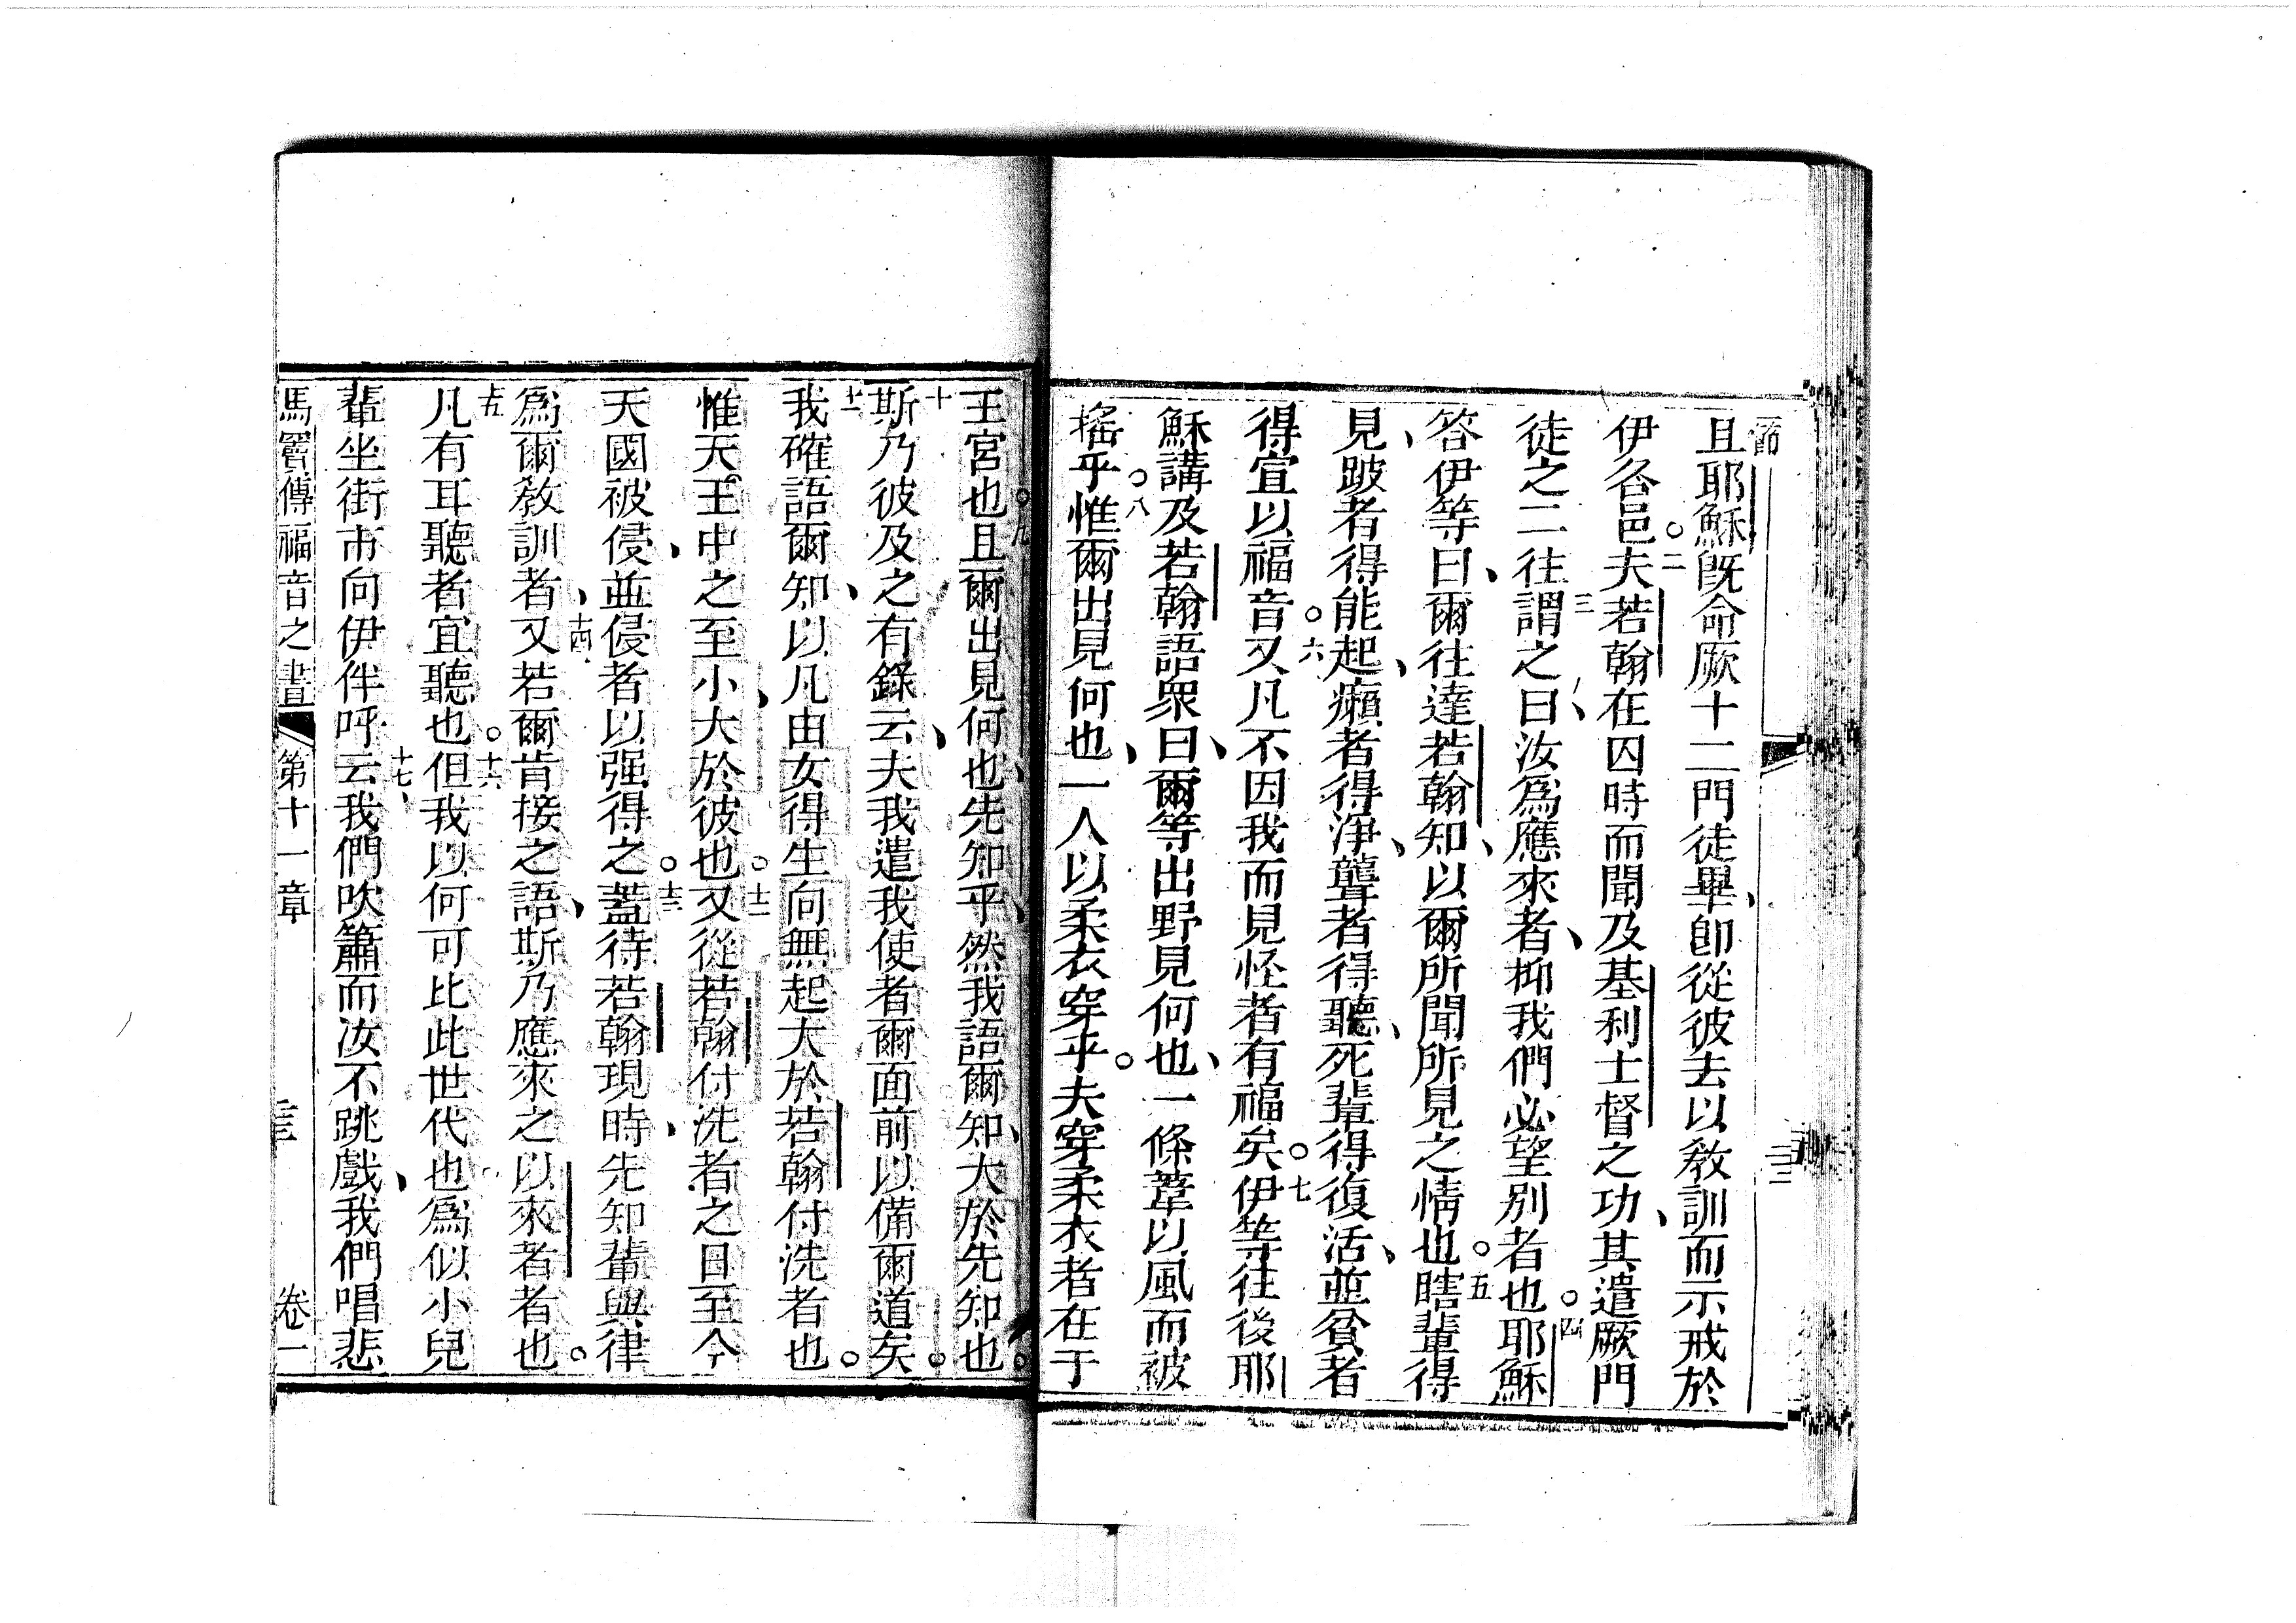 一節
且耶穌旣命厥十二門徒畢、卽從彼去以敎訓而示戒於
伊各邑。二夫若翰在囚時而聞及基利士督之功、其遣厥門
徒之二往三謂之曰、汝爲應來者、抑我們必望別者也。四耶穌
答伊等曰、爾往達若翰知、以爾所聞所見之情也。五瞎輩得
見、跛者得能起、癩者得淨、聾者得聽、死輩得復活、並貧者
得宣以福音。六又凡不因我而見怪者有福矣。七伊等往後耶
穌講及若翰語衆曰、爾等出野見何也、一條葦以風而被
搖乎。八惟爾出見何也、一人以柔衣穿乎。夫穿柔衣者在于
王宮也。九且爾出見何也、先知乎、然我語爾知、大於先知也。
十斯乃彼及之有錄云、夫我遣我使者爾面前以備爾道矣。
十一我確語爾知、以凡由女得生向無起大於若翰付洗者也。
惟天王中之至小、大於彼也。十二又從若翰付洗者之日至今
天國被侵、並侵者以强得之。十三蓋待若翰現時、先知輩與律
爲爾敎訓者、十四又若爾肯接之語、斯乃應來之以來者者也。
十五凡有耳聽者宜聽也。十六但我以何可比此世代也爲似小兒
輩坐街市向伊伴呼十七云、我們吹簫而汝不跳戲、我們唱悲
馬竇傳福音之書 第十一章 卷一